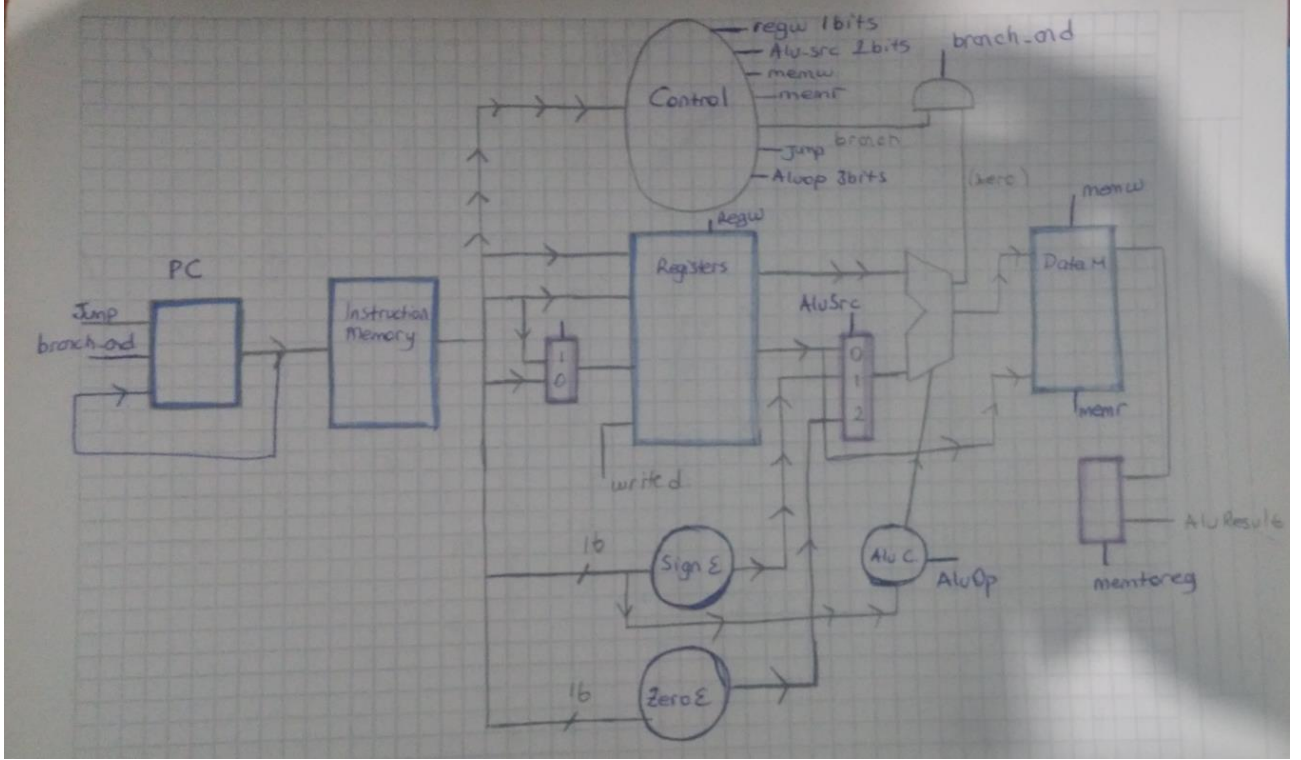 regw 1bits
Alu-src 2bits
memw
memr
branch_and
Control
branch
Jump
Aluop 3bits
(zero)
memw
Regw
PC
Registers
Data M
Jump
Instruction
Memory
AluSrc
branch_and
1
0
0
1
2
memr
write d
16
Sign E
Alu C
AluOp
AluResult
memtoreg
16
Zero E